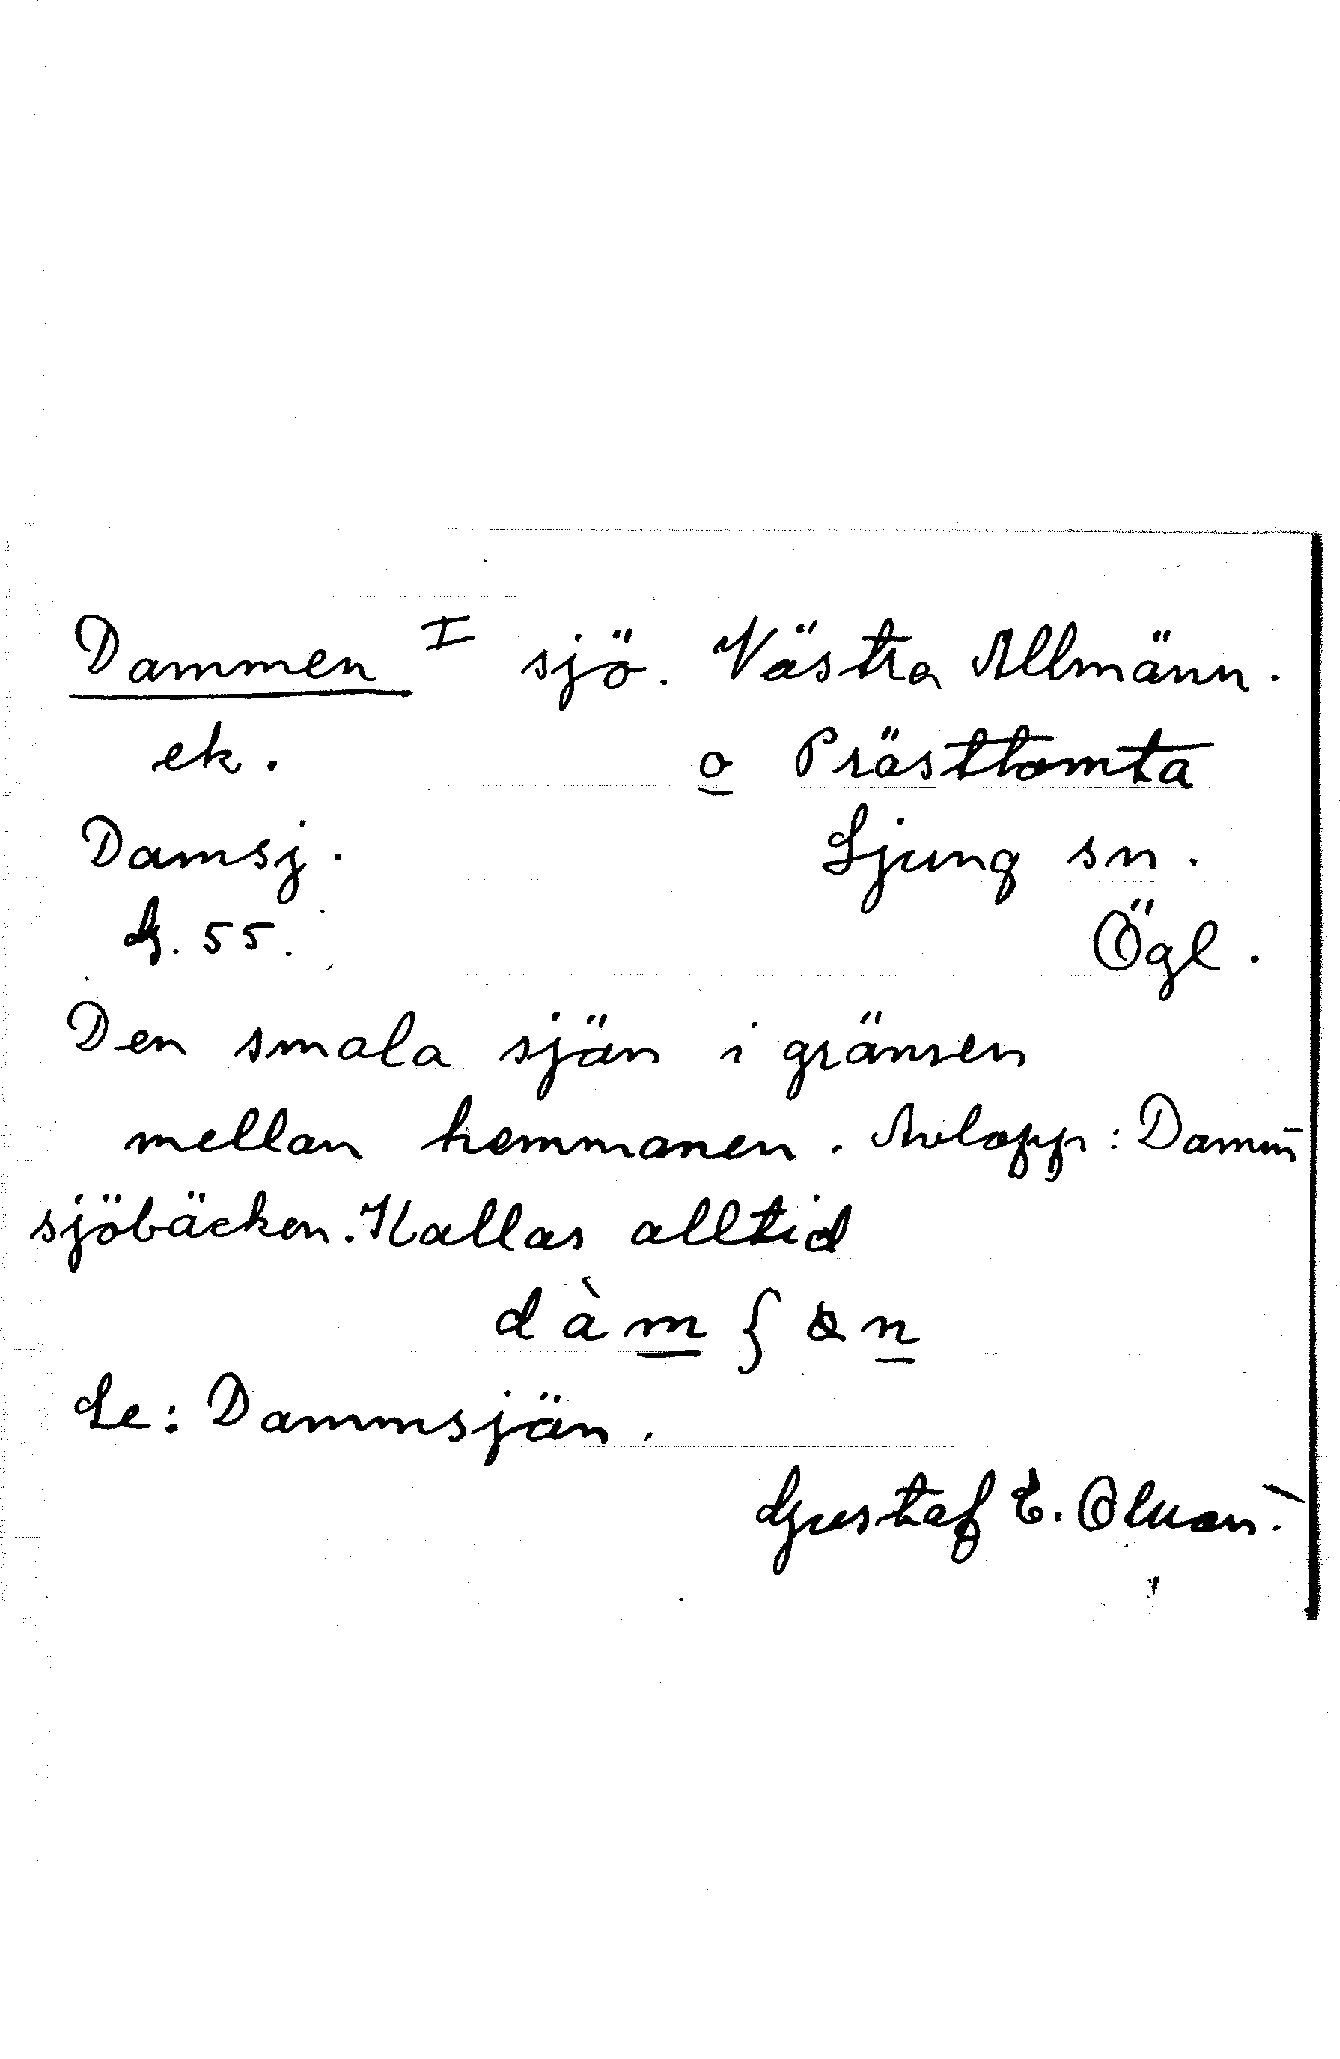 Dammen I sjö. Västra Allmänn.
ek. o Prästtomta
Damsj. Ljung sn.
G. 55. Ögl.
Den smala sjön i gränsen
mellan hemmanen. Avlopp: Damm
sjöbäcken. Kallas alltid
dàm { n
Se: Dammsjön.
Gustaf E. Olsson.